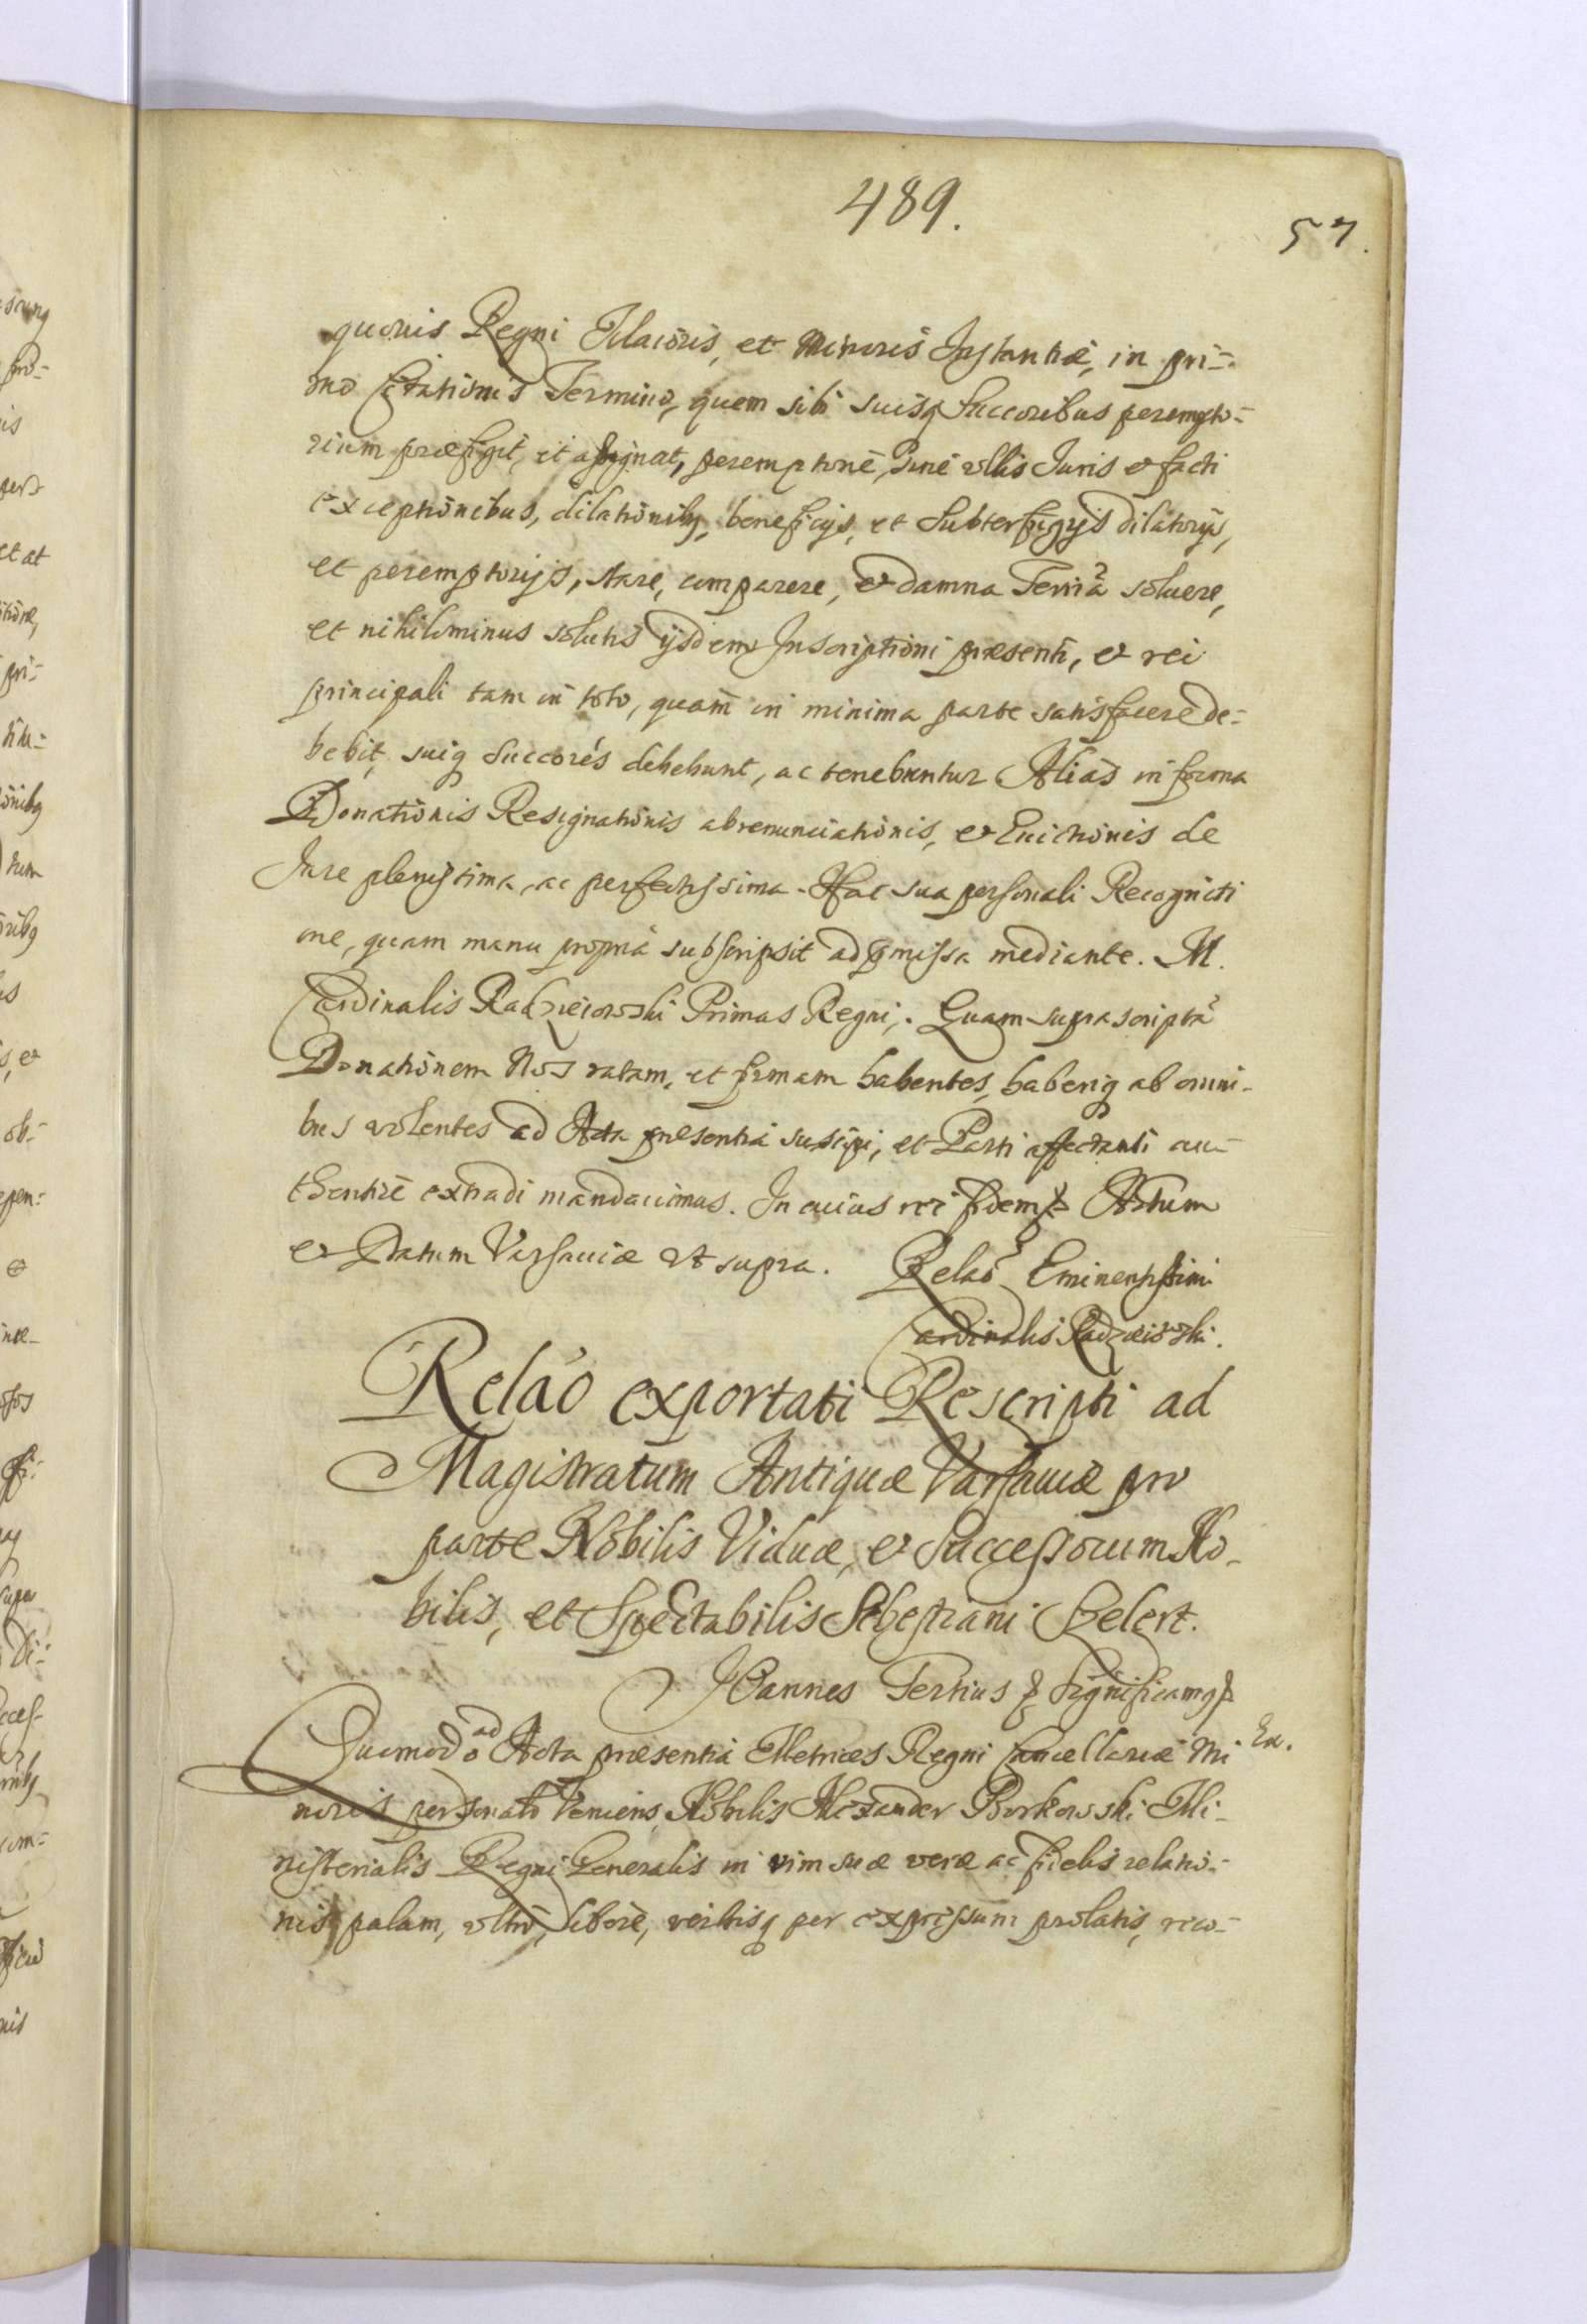 489.
57.
quouis Regni Maioris, et Minoris Instantiæ, in pri=
mo Citationis Termino, quem sibi suisq Succoribus perempto=
rium præfigit, et assignat, peremptoriè, sine vllis Juris et facti
exceptionibus, dilationibq, beneficijs, et Subterfugijs dilatorijs,
et peremptorijs, stare, comparere, et damna Terrã soluere,
et nihilominus solutis ijsdem Inscriptioni præsenti, et rei
principali tam in toto, quam in minima parte satisfacere de=
bebit, suiq Succorés debebunt, ac tenebuntur Alias in forma
Donationis Resignationis abrenunciationis, et Euictionis de
Jure plenissima, ac perfectissima. Hac sua personali Recogniti
one, quam manu propria subscripsit ad pmissa mediante. M.
Cardinalis Radzieiowski Primas Regni. Quam suprascriptã
Donationem Nos ratam, et firmam habentes, haberiq ab omni-
bus volentes ad Acta præsentia suscipi, et Parti affectanti au=
thenticè extradi mandauimus. In cuius rei fidem & Actum
et Datum Varsauiæ vt supra. Relaõ Eminentissimi
Cardinalis Radzieiowski.
Relaõ exportati Rescripti ad
Magistratum Antiquæ Varsauiæ pro
parte Nobilis Viduæ, et Successorum No-
bilis, et Spectabilis Sebestiani
Joannes Tertius & Significamq &
Quomodo ad Acta præsentia Metrices Regni Cancellariæ Mi
Ex.
noris personalr Veniens, Nobilis Alexander Borkowski Mi-
nisterialis Regni Generalis in vim suæ veræ ac fidelis relatio-
nis palam, vltrò, liberè, verbisq per expressum prolatis, reco-